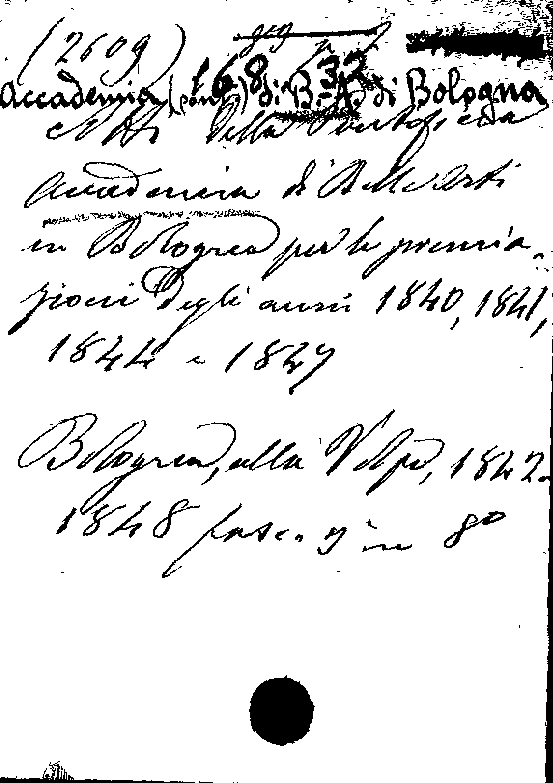 (2609)
168 32
Accademia (pont.) di B. A. di Bologna
Atti della Pontificia
Accademia di Belle Arti
in Bologna per le premia-
zioni degli anni 1840, 1841,
1844 e 1847
Bologna, alla Volpe, 1842-
1848 fasc. 9 in 8º